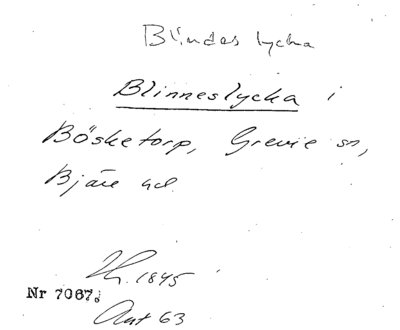 Blindes lycka
Blinneslycka i
Bösketorp, Grevie sn,
Bjäre hd.
1845
Nr 7067.
Ant 63